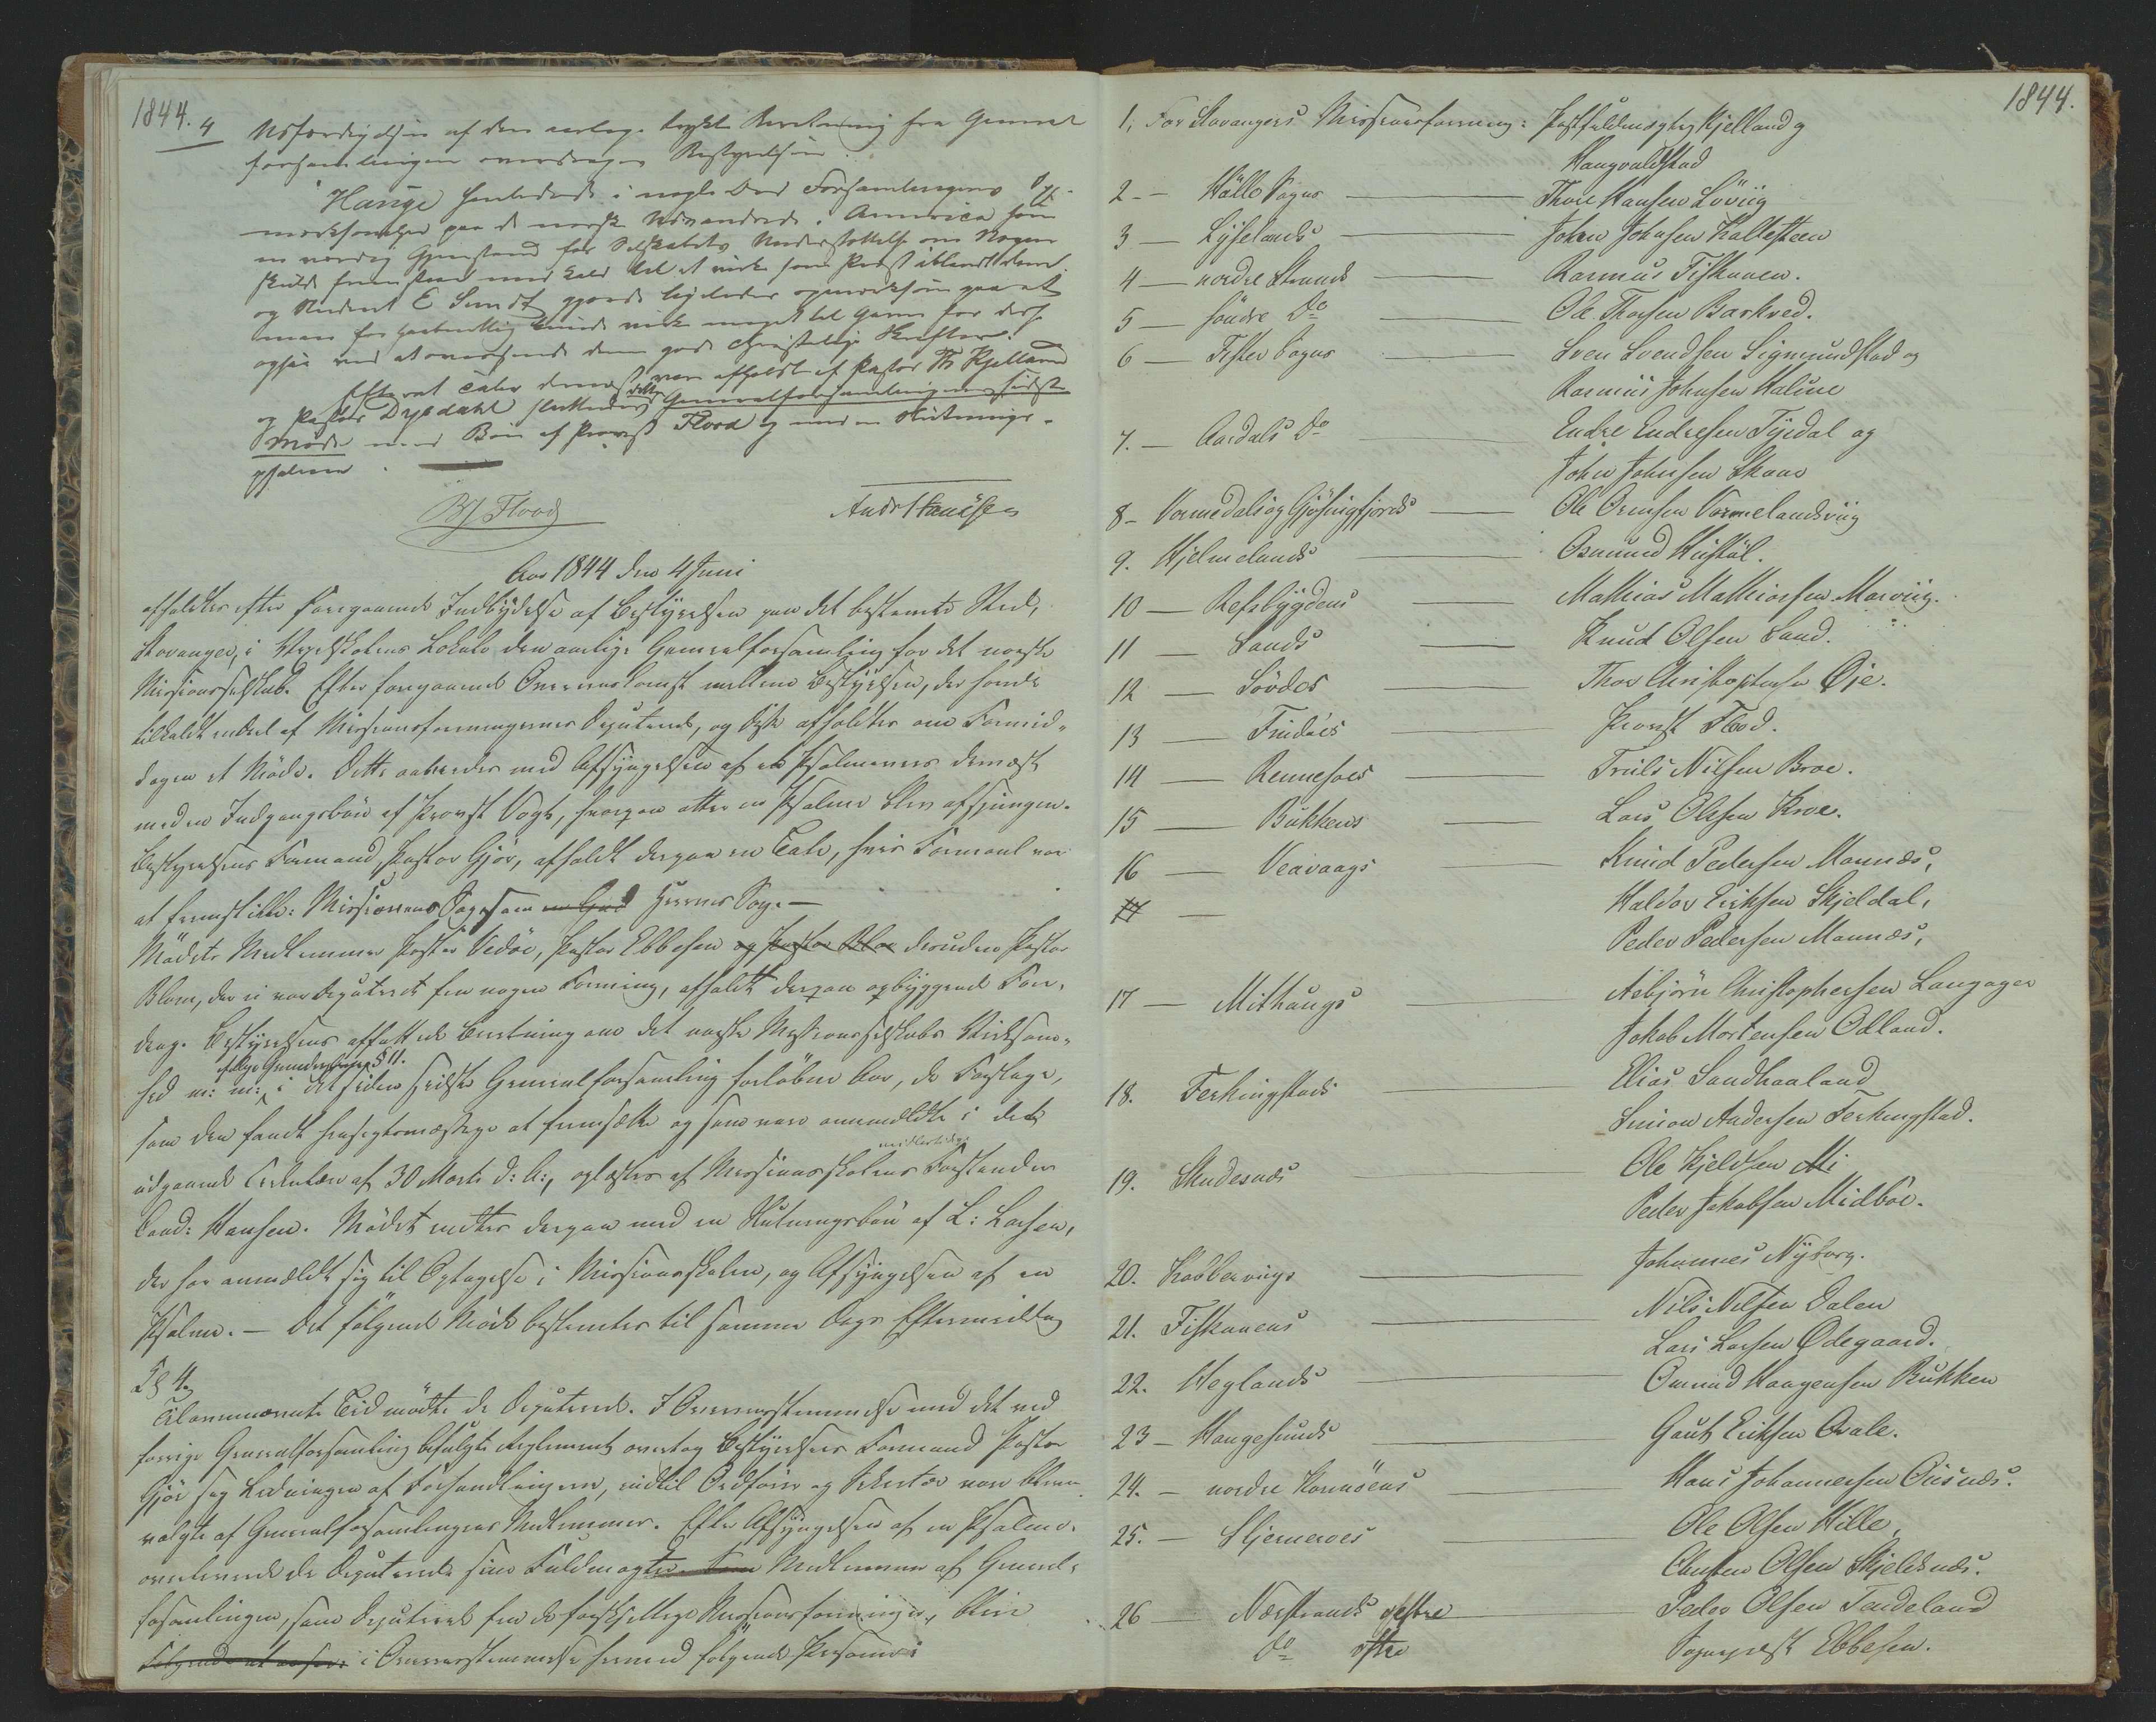 1844.
4 Udfærdigelsen af den aarlige trykte Beretning fra General
forsamlingen overdrages Bestyrelsen.
Hauge henledede i nogle Ord Forsamlingens Op-
mærksomhed paa de norske Udvandrede i America som
en værdig Gjenstand for Selskabets Understøttelse om Nogen
skulde fremstaae med Kald til at virke som Præst iblandt dem.
og Student E Sundt gjorde ligeledes opmærksom paa at
man forhaabentlig kunde virke meget til Gavn for disse
ogsaa ved at oversende dem gode christelige Skrifter.
Efterat Taler dernæst vare afholdt af Pastor Th Kjelland
og Pastor Dysdahl sluttedes dette Generalforsamlingens sidste
Møde med Bøn af Provst Flood og med en Slutnings-
psalme.
B Flood
Andr Hauißen
Aar 1844 den 4 Juni
afholdtes efter foregaaende Indbydelse af Bestyrelsen paa det bestemte Sted,
Stavanger, i Skolens Lokale den aarlige Generalforsamling for det norske
Missionsselskab. Efter foregaaende Overeenskomst mellem Bestyrelsen, der havde
tilkaldt endeel af Missionsforeningernes Deputerede, og disse afholdtes om Formid-
dagen et Møde. Dette aabnedes med Afsyngelsen af en Psalmevers dernæst
med en Indgangsbøn af Provst Vogt, hvorpaa atter en Psalme blev afsjungen.
Bestyrelsens Formand, Pastor Gjør, afholdt derpaa en Tale, hvis Formaal var
at fremstille: Missionens Sag som en Gud Herrens Sag. —
Mødets Medlemmer Pastor Vedøe, Pastor Ebbesen og Pastor Blom desuden Pastor
Blom, der ei var Deputeret fra nogen Forening, afholdt derpaa opbyggende Fore-
drag. Bestyrelsens affattede Beretning om det norske Missionsselskabs Virksom-
ifølge Grundreglernes § 11.
hed m: m: i det siden sidste Generalforsamling forløbne Aar, de Forslage,
som den fandt hensigtsmæssige at fremsætte og som vare anmeldte i dets
midlertidige
udgaaende Circulære af 30 Marts d: A:, oplæstes af Missionsskolens Forstander
Cand: Hansen. Mødet endtes derpaa med en Slutningsbøn af L: Larsen,
der har anmeldt sig til Optagelse i Missionsskolen, og Afsyngelsen af en
Psalme. — Det følgende Møde bestemtes til samme Dags Eftermiddag
Kl 4.
Til ommeldte Tid mødte de Deputerede. I Overensstemmelse med det ved
forrige Generalforsamling befulgte Reglement overtog Bestyrelsens Formand Pastor
Gjør sig Ledningen af Forhandlingerne, indtil Ordfører og Sekretær vare blevne
valgte af Generalforsamlingens Medlemmer. Efter Afsyngelsen af en Psalme
overleverede de Deputerede sine Fuldmagter. Som Medlemmer af General-
forsamlingen, som Deputerede fra de forskjellige Missionsforeninger, bleve
følgende at ansees i Overensstemmelse hermed følgende Personer:
1844.
1, For Stavangers Missionsforening: Postfuldmægtig Kjelland og
Haugvaldstad
2 — Hålle Sogns — Thore Hansen Løviig
3 — Lyselands — John Johnsen Kallesteen
4 — nordre Strands — Rasmus Fiskaaen.
5 — søndre Do — Ole Thorsen Barkved.
6 — Fister Sogns — Sven Svendsen Sigmundstad og
Rasmus Johnsen Halne
7. — Aardals Do — Endre Endresen Tysdal og
John Johnsen Skaar
8 — Vormedals og Gjøsingfjords — Ole Ormsen Vormelandsviig
9. Hjelmelands — Osmund Hustøl.
10 — Refsbygdens — Mathias Mathiassen Marviig.
11 — Sands — Knud Olsen Sand.
12 — Søvdes — Thor Christophersen Øie.
13 — Findøes — Provst Flood.
14 — Rennesøes — Truls Nilsen Broe.
15 — Bukkens — Lars Olsen Kroe.
16 — Veavaags — Knud Pedersen Mannæs,
17 — Haldor Eriksen Skjeldal,
Peder Pedersen Mannæs,
17 — Mithaugs — Asbjørn Christophersen Langager
Jakob Mortensen Odland.
18. Ferkingstads — Elias Sandhaaland
Simon Andersen Ferkingstad.
19. Skudesnæs — Ole Kjeldsen Mi
Peder Jakobsen Midbøe.
20. Kobbervigs — Johannes Nyborg.
21. Fiskaaens — Nils Nilsen Dalen
Lars Larsen Ødegaard.
22. Heglands — Omund Haagensen Bukken
23 — Haugesunds — Gaut Eriksen Qvale.
24. — nordre Karmøens — Hans Johannessen Øisnæs.
25. — Stjerneroes — Ole Olsen Hille,
Christen Olsen Skjelsnæs.
26 — Nærstrands vestre — Peder Olsen Tendeland
Do østre — Sognepræst Ebbesen.